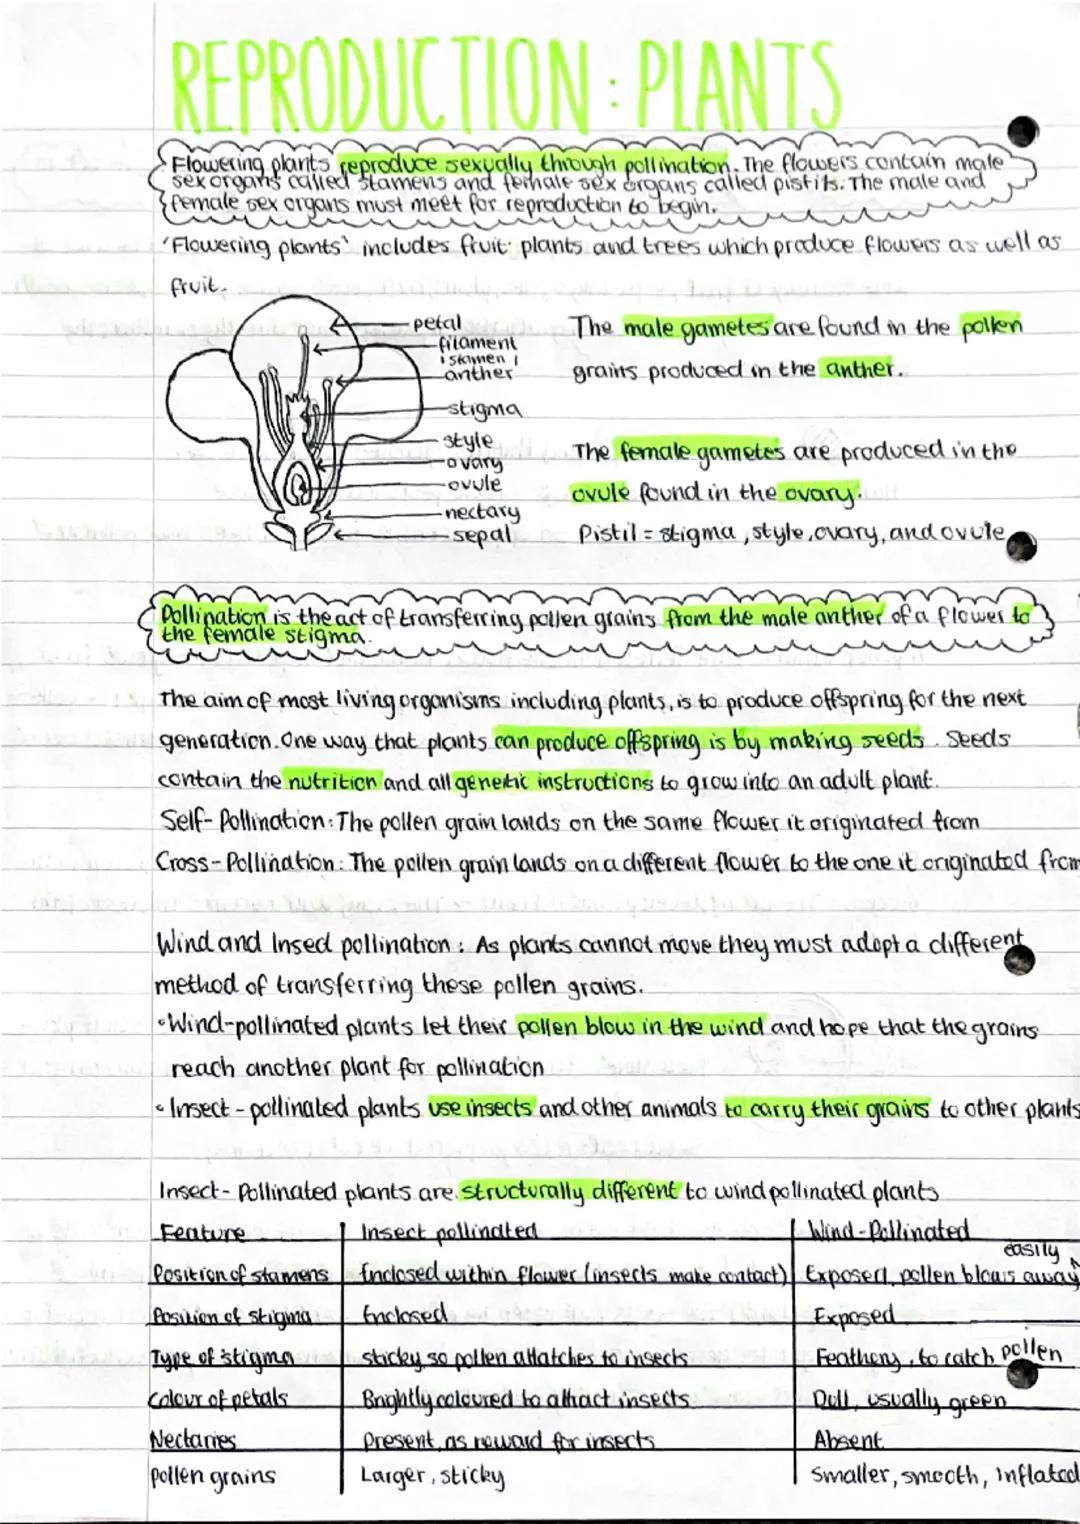 REPRODUCTION: PLANTS
Flowering plants reproduce sexually through pollination. The flowers contain male
sex organs called stamens and female sex organs called pistils. The male and
female sex organs must meet for reproduction to begin.
'Flowering plants' includes fruit plants and trees which produce flowers as well as
fruit.
petal
filament
stamen
anther
stigma
style
ovary
ovule
nectary
sepal
The male gametes are found in the pollen
grains produced in the anther.
The female gametes are produced in the
ovule found in the ovary.
Pistil = stigma, style, ovary, and ovule
Pollination is the act of transferring pollen grains from the male anther of a flower to
the female stigma.
The aim of most living organisms including plants, is to produce offspring for the next
generation. One way that plants can produce offspring is by making seeds. Seeds
contain the nutrition and all genetic instructions to grow into an adult plant.
Self-Pollination: The pollen grain lands on the same flower it originated from
Cross-Pollination: The pollen grain lands on a different flower to the one it originated from
Wind and Insect pollination: As plants cannot move they must adopt a different
method of transferring these pollen grains.
• Wind-pollinated plants let their pollen blow in the wind and hope that the grains
reach another plant for pollination
• Insect-pollinated plants use insects and other animals to carry their grains to other plants
Insect-Pollinated plants are structurally different to wind pollinated plants
Feature Insect pollinated Wind-Pollinated
Position of stamens Enclosed within flower (insects make contact) Exposed, pollen blows away easily
Position of stigma Enclosed Exposed
Type of stigma sticky so pollen attatches to insects Feathery, to catch pollen
Colour of petals Brightly coloured to attract insects Dull, usually green
Nectaries Present, as reward for insects Absent
pollen grains Larger, sticky Smaller, smooth, inflated